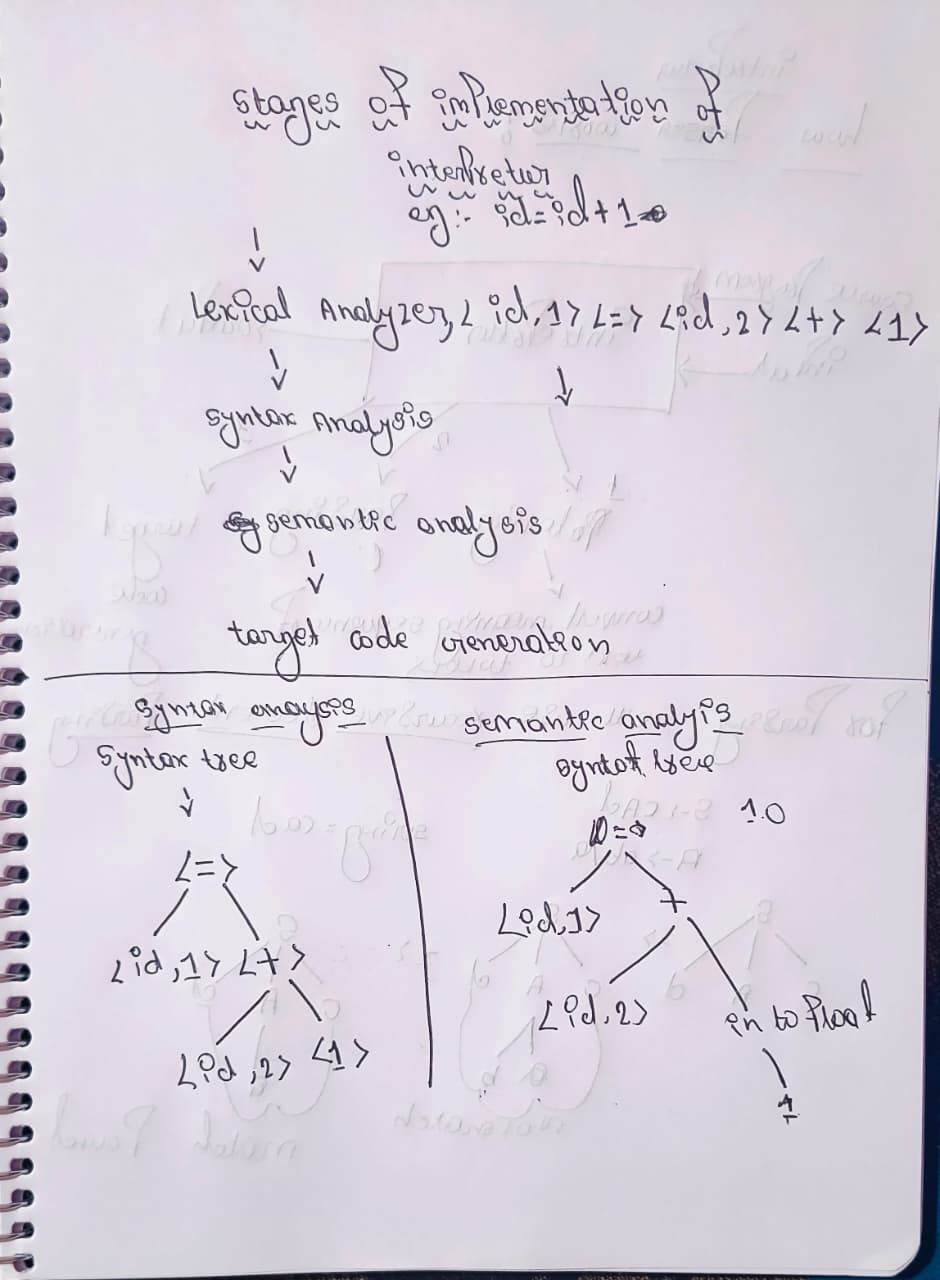 stages of implementation of
interpreter
eg:- id=id+1
Lexical Analyzer, <id,1> <=> <id,2> <+> <1>
syntax Analysis
semantic analysis
target code Generation
Syntax anaysis
Syntax tree
<=>
<id,1> <+>
<id,2> <1>
semantic analyis
syntax tree
1.0
=
<id,1> +
<id,2> in to float
1